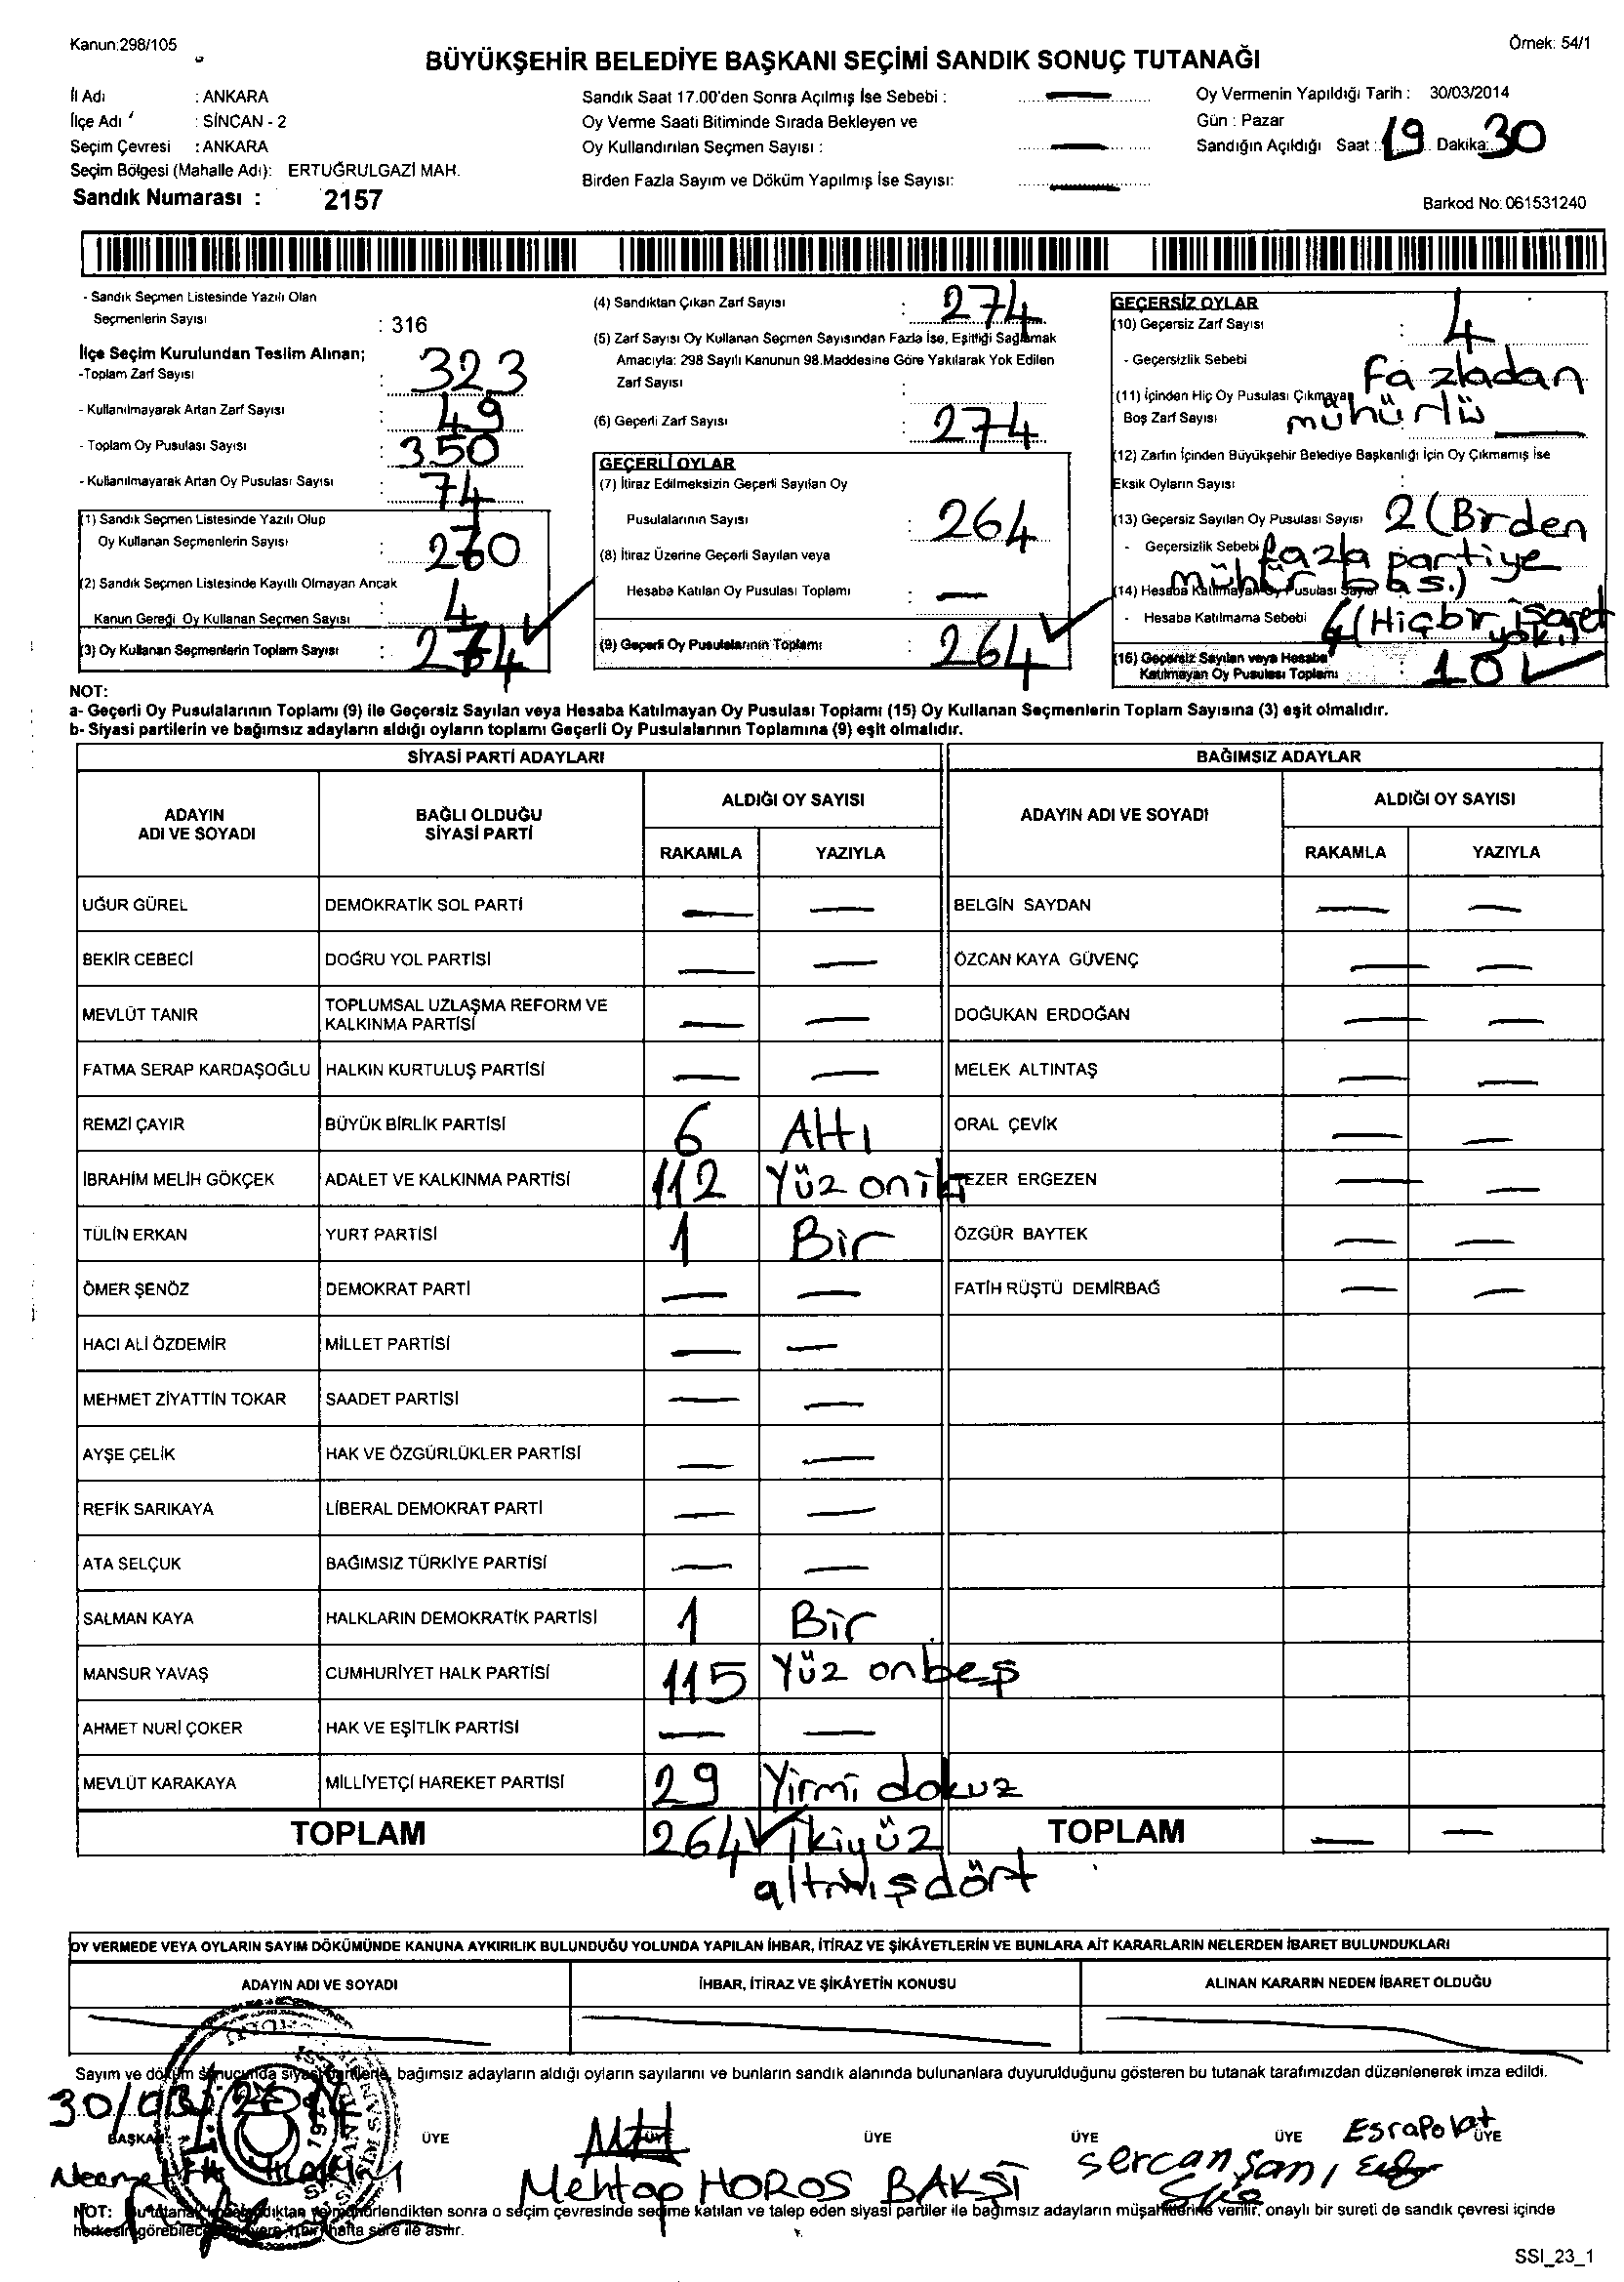 Kanun:298/105
Örnek: 54/1
BÜYÜKŞEHİR BELEDİYE BAŞKANI SEÇİMİ SANDIK SONUÇ TUTANAĞI
İl Adı : ANKARA
İlçe Adı : SİNCAN - 2
Seçim Çevresi : ANKARA
Seçim Bölgesi (Mahalle Adı): ERTUĞRULGAZİ MAH.
Sandık Numarası : 2157
Sandık Saat 17.00'den Sonra Açılmış İse Sebebi :
Oy Verme Saati Bitiminde Sırada Bekleyen ve
Oy Kullandırılan Seçmen Sayısı :
Birden Fazla Sayım ve Döküm Yapılmış İse Sayısı:
Oy Vermenin Yapıldığı Tarih : 30/03/2014
Gün : Pazar
Sandığın Açıldığı Saat : 19 Dakika: 30
Barkod No: 061531240
- Sandık Seçmen Listesinde Yazılı Olan
Seçmenlerin Sayısı : 316
İlçe Seçim Kurulundan Teslim Alınan;
-Toplam Zarf Sayısı : 323
- Kullanılmayarak Artan Zarf Sayısı : 49
- Toplam Oy Pusulası Sayısı : 350
- Kullanılmayarak Artan Oy Pusulası Sayısı : 74
(1) Sandık Seçmen Listesinde Yazılı Olup
Oy Kullanan Seçmenlerin Sayısı : 270
(2) Sandık Seçmen Listesinde Kayıtlı Olmayan Ancak
Kanun Gereği Oy Kullanan Seçmen Sayısı : 4
(3) Oy Kullanan Seçmenlerin Toplam Sayısı : 274
(4) Sandıktan Çıkan Zarf Sayısı : 274
(5) Zarf Sayısı Oy Kullanan Seçmen Sayısından Fazla İse, Eşitliği Sağlamak
Amacıyla: 298 Sayılı Kanunun 98.Maddesine Göre Yakılarak Yok Edilen
Zarf Sayısı :
(6) Geçerli Zarf Sayısı : 274
GEÇERLİ OYLAR
(7) İtiraz Edilmeksizin Geçerli Sayılan Oy
Pusulalarının Sayısı : 264
(8) İtiraz Üzerine Geçerli Sayılan veya
Hesaba Katılan Oy Pusulası Toplamı : —
(9) Geçerli Oy Pusulalarının Toplamı : 264
GEÇERSİZ OYLAR
(10) Geçersiz Zarf Sayısı : 4
- Geçersizlik Sebebi fazladan
(11) İçinden Hiç Oy Pusulası Çıkmayan
Boş Zarf Sayısı mühürlü —
(12) Zarfın İçinden Büyükşehir Belediye Başkanlığı İçin Oy Çıkmamış İse
Eksik Oyların Sayısı :
(13) Geçersiz Sayılan Oy Pusulası Sayısı 2 (Birden
- Geçersizlik Sebebi fazla partiye
mühür bas.)
(14) Hesaba Katılmayan Oy Pusulası Sayısı
- Hesaba Katılmama Sebebi 4 (Hiçbir işaret
yok)
(15) Geçersiz Sayılan veya Hesaba
Katılmayan Oy Pusulası Toplamı : 10
NOT:
a- Geçerli Oy Pusulalarının Toplamı (9) ile Geçersiz Sayılan veya Hesaba Katılmayan Oy Pusulası Toplamı (15) Oy Kullanan Seçmenlerin Toplam Sayısına (3) eşit olmalıdır.
b- Siyasi partilerin ve bağımsız adayların aldığı oyların toplamı Geçerli Oy Pusulalarının Toplamına (9) eşit olmalıdır.
SİYASİ PARTİ ADAYLARI BAĞIMSIZ ADAYLAR
ADAYIN ADI VE SOYADI BAĞLI OLDUĞU SİYASİ PARTİ ALDIĞI OY SAYISI ADAYIN ADI VE SOYADI ALDIĞI OY SAYISI
RAKAMLA YAZIYLA RAKAMLA YAZIYLA
UĞUR GÜREL DEMOKRATİK SOL PARTİ — — BELGİN SAYDAN — —
BEKİR CEBECİ DOĞRU YOL PARTİSİ — — ÖZCAN KAYA GÜVENÇ — —
MEVLÜT TANIR TOPLUMSAL UZLAŞMA REFORM VE KALKINMA PARTİSİ — — DOĞUKAN ERDOĞAN — —
FATMA SERAP KARDAŞOĞLU HALKIN KURTULUŞ PARTİSİ — — MELEK ALTINTAŞ — —
REMZİ ÇAYIR BÜYÜK BİRLİK PARTİSİ 6 Altı ORAL ÇEVİK — —
İBRAHİM MELİH GÖKÇEK ADALET VE KALKINMA PARTİSİ 112 Yüz oniki EZER ERGEZEN — —
TÜLİN ERKAN YURT PARTİSİ 1 Bir ÖZGÜR BAYTEK — —
ÖMER ŞENÖZ DEMOKRAT PARTİ — — FATİH RÜŞTÜ DEMİRBAĞ — —
HACI ALİ ÖZDEMİR MİLLET PARTİSİ — —
MEHMET ZİYATTİN TOKAR SAADET PARTİSİ — —
AYŞE ÇELİK HAK VE ÖZGÜRLÜKLER PARTİSİ — —
REFİK SARIKAYA LİBERAL DEMOKRAT PARTİ — —
ATA SELÇUK BAĞIMSIZ TÜRKİYE PARTİSİ — —
SALMAN KAYA HALKLARIN DEMOKRATİK PARTİSİ 1 Bir
MANSUR YAVAŞ CUMHURİYET HALK PARTİSİ 115 Yüz onbeş
AHMET NURİ ÇOKER HAK VE EŞİTLİK PARTİSİ — —
MEVLÜT KARAKAYA MİLLİYETÇİ HAREKET PARTİSİ 29 Yirmi dokuz
TOPLAM 264 İkiyüz altmışdört TOPLAM — —
OY VERMEDE VEYA OYLARIN SAYIM DÖKÜMÜNDE KANUNA AYKIRILIK BULUNDUĞU YOLUNDA YAPILAN İHBAR, İTİRAZ VE ŞİKÂYETLERİN VE BUNLARA AİT KARARLARIN NELERDEN İBARET BULUNDUKLARI
ADAYIN ADI VE SOYADI İHBAR, İTİRAZ VE ŞİKÂYETİN KONUSU ALINAN KARARIN NEDEN İBARET OLDUĞU
Sayım ve döküm sonucunda siyasi partilerle, bağımsız adayların aldığı oyların sayılarını ve bunların sandık alanında bulunanlara duyurulduğunu gösteren bu tutanak tarafımızdan düzenlenerek imza edildi.
30/03/2014
BAŞKAN ÜYE ÜYE ÜYE ÜYE ÜYE ÜYE
Mehtap HOROS BAKŞİ sercan şanı Esra Polat
NOT: Bu tutanak sonra o seçim çevresinde seçime katılan ve talep eden siyasi partiler ile bağımsız adayların müşahitlerine verilir, onaylı bir sureti de sandık çevresi içinde
herkesin görebileceği bir yere, bir hafta süre ile asılır.
SSI_23_1